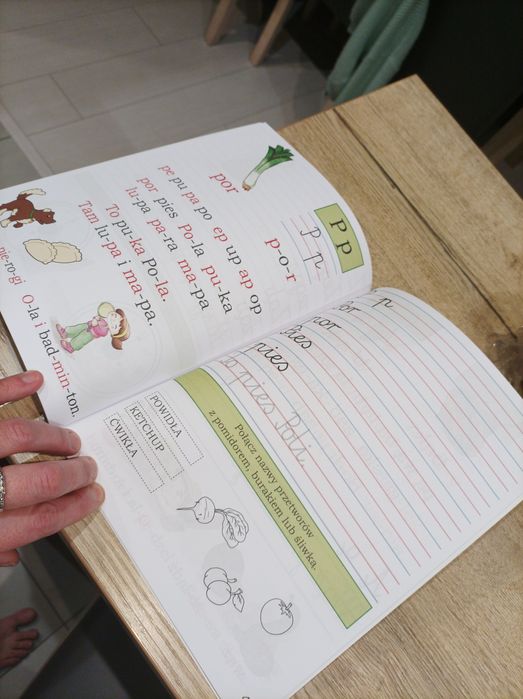 P p
P p
por
p-o-r
pe pu pa po ep up ap op
por pies Po-la pu-ka
lu-pa pa-ra ma-pa
To pu-ka Po-la.
Tam lu-pa i ma-pa.
pie-ro-gi
O-la i bad-min-ton.
p
por
pies
pies
pies Pola.
Połącz nazwy przetworów
z pomidorem, burakiem lub śliwką.
POWIDŁA
KETCHUP
ĆWIKŁA